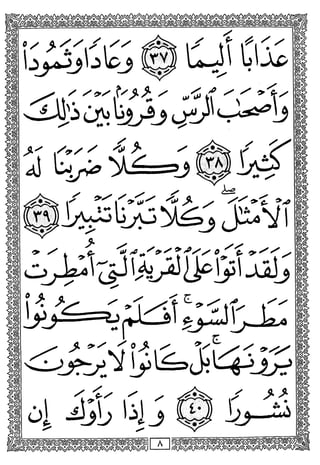 عَذَابًا أَلِيمًا ۝٣٧ وَعَادًا وَثَمُودَا۟
وَأَصْحَٰبَ ٱلرَّسِّ وَقُرُونًۢا بَيْنَ ذَٰلِكَ
كَثِيرًا ۝٣٨ وَكُلًّا ضَرَبْنَا لَهُ
ٱلْأَمْثَٰلَ ۖ وَكُلًّا تَبَّرْنَا تَتْبِيرًا ۝٣٩
وَلَقَدْ أَتَوْا۟ عَلَى ٱلْقَرْيَةِ ٱلَّتِىٓ أُمْطِرَتْ
مَطَرَ ٱلسَّوْءِ ۚ أَفَلَمْ يَكُونُوا۟
يَرَوْنَهَا ۚ بَلْ كَانُوا۟ لَا يَرْجُونَ
نُشُورًا ۝٤٠ وَإِذَا رَأَوْكَ إِن
٨